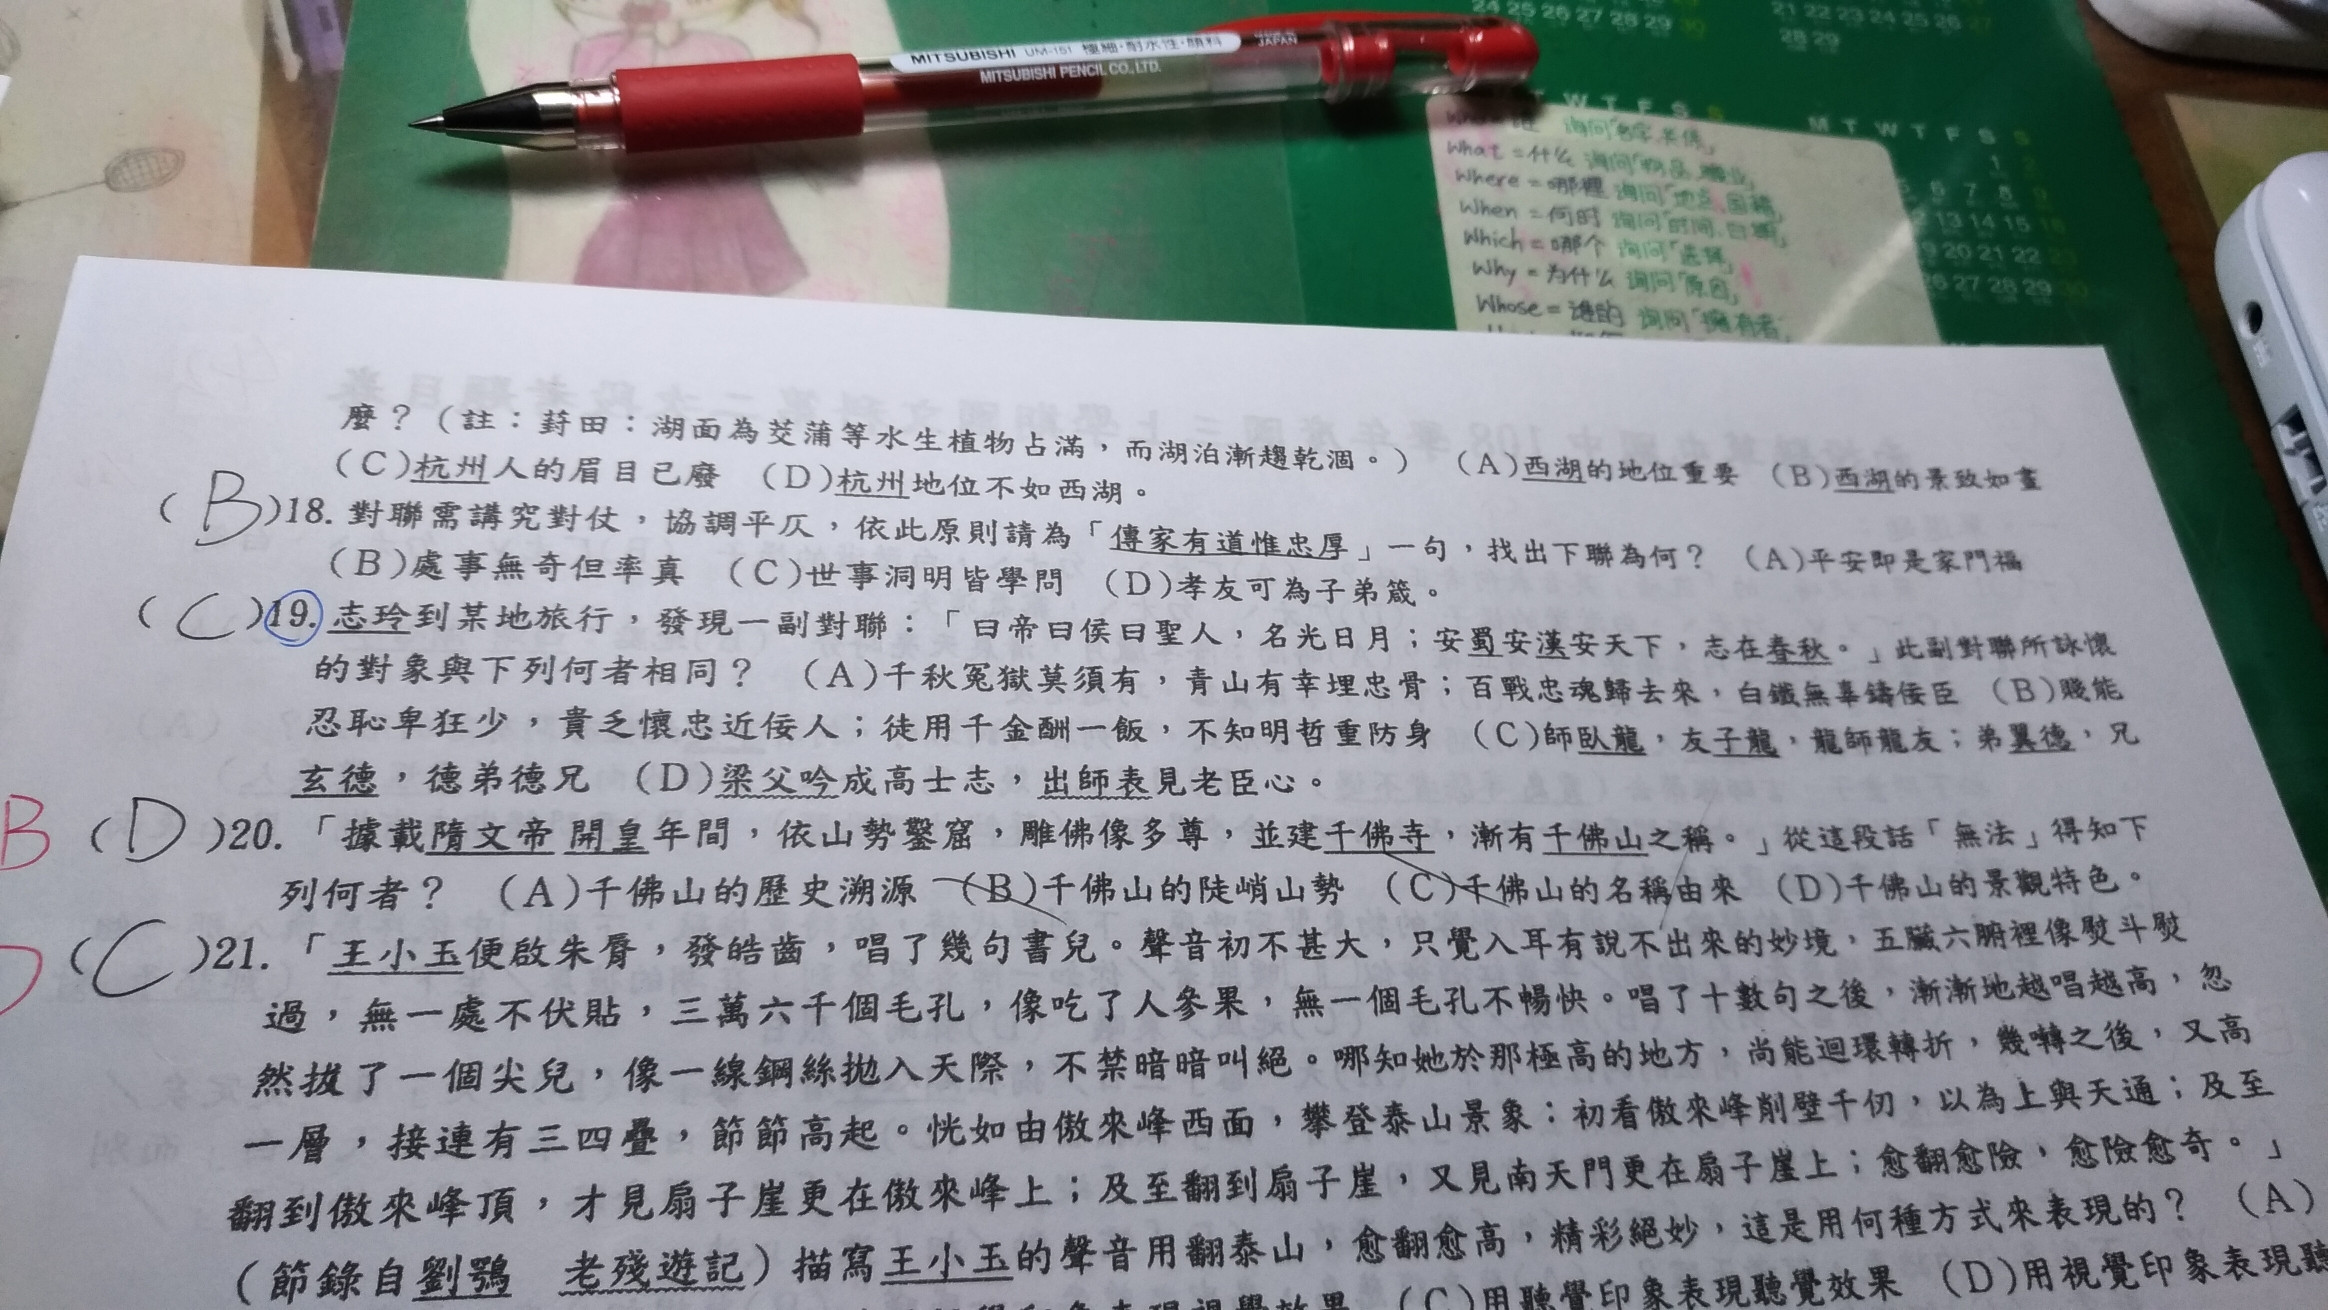 MITSUBISHI UM-151 極細·耐水性·顔料
MITSUBISHI PENCIL CO., LTD.
JAPAN
24 25 26 27 28 29 30
21 22 23 24 25 26 27
28 29
W T F S S
M T W T F S S
1 2
5 6 7 8 9
12 13 14 15 16
19 20 21 22
26 27 28 29 30
What = 什么
Where = 哪裡
When = 何时 询问「时间、日期」
Which = 哪个 询问「选择」
Why = 为什么 询问「原因」
Whose = 谁的 询问「擁有者」
麼？（註：葑田：湖面為茭蒲等水生植物占滿，而湖泊漸趨乾涸。） (A)西湖的地位重要 (B)西湖的景致如畫
(C)杭州人的眉目已廢 (D)杭州地位不如西湖。
( B )18. 對聯需講究對仗，協調平仄，依此原則請為「傳家有道惟忠厚」一句，找出下聯為何？ (A)平安即是家門福
(B)處事無奇但率真 (C)世事洞明皆學問 (D)孝友可為子弟箴。
( C )19. 志玲到某地旅行，發現一副對聯：「曰帝曰侯曰聖人，名光日月；安蜀安漢安天下，志在春秋。」此副對聯所詠懷
的對象與下列何者相同？ (A)千秋冤獄莫須有，青山有幸埋忠骨；百戰忠魂歸去來，白鐵無辜鑄佞臣 (B)賤能
忍恥卑狂少，貴乏懷忠近佞人；徒用千金酬一飯，不知明哲重防身 (C)師臥龍，友子龍，龍師龍友；弟翼德，兄
玄德，德弟德兄 (D)梁父吟成高士志，出師表見老臣心。
B ( D )20. 「據載隋文帝 開皇年間，依山勢鑿窟，雕佛像多尊，並建千佛寺，漸有千佛山之稱。」從這段話「無法」得知下
列何者？ (A)千佛山的歷史溯源 (B)千佛山的陡峭山勢 (C)千佛山的名稱由來 (D)千佛山的景觀特色。
( C )21. 「王小玉便啟朱脣，發皓齒，唱了幾句書兒。聲音初不甚大，只覺入耳有說不出來的妙境，五臟六腑裡像熨斗熨
過，無一處不伏貼，三萬六千個毛孔，像吃了人參果，無一個毛孔不暢快。唱了十數句之後，漸漸地越唱越高，忽
然拔了一個尖兒，像一線鋼絲拋入天際，不禁暗暗叫絕。哪知她於那極高的地方，尚能迴環轉折，幾囀之後，又高
一層，接連有三四疊，節節高起。恍如由傲來峰西面，攀登泰山景象：初看傲來峰削壁千仞，以為上與天通；及至
翻到傲來峰頂，才見扇子崖更在傲來峰上；及至翻到扇子崖，又見南天門更在扇子崖上；愈翻愈險，愈險愈奇。」
（節錄自劉鶚 老殘遊記）描寫王小玉的聲音用翻泰山，愈翻愈高，精彩絕妙，這是用何種方式來表現的？ (A)
表現視覺效果 (C)用聽覺印象表現聽覺效果 (D)用視覺印象表現聽